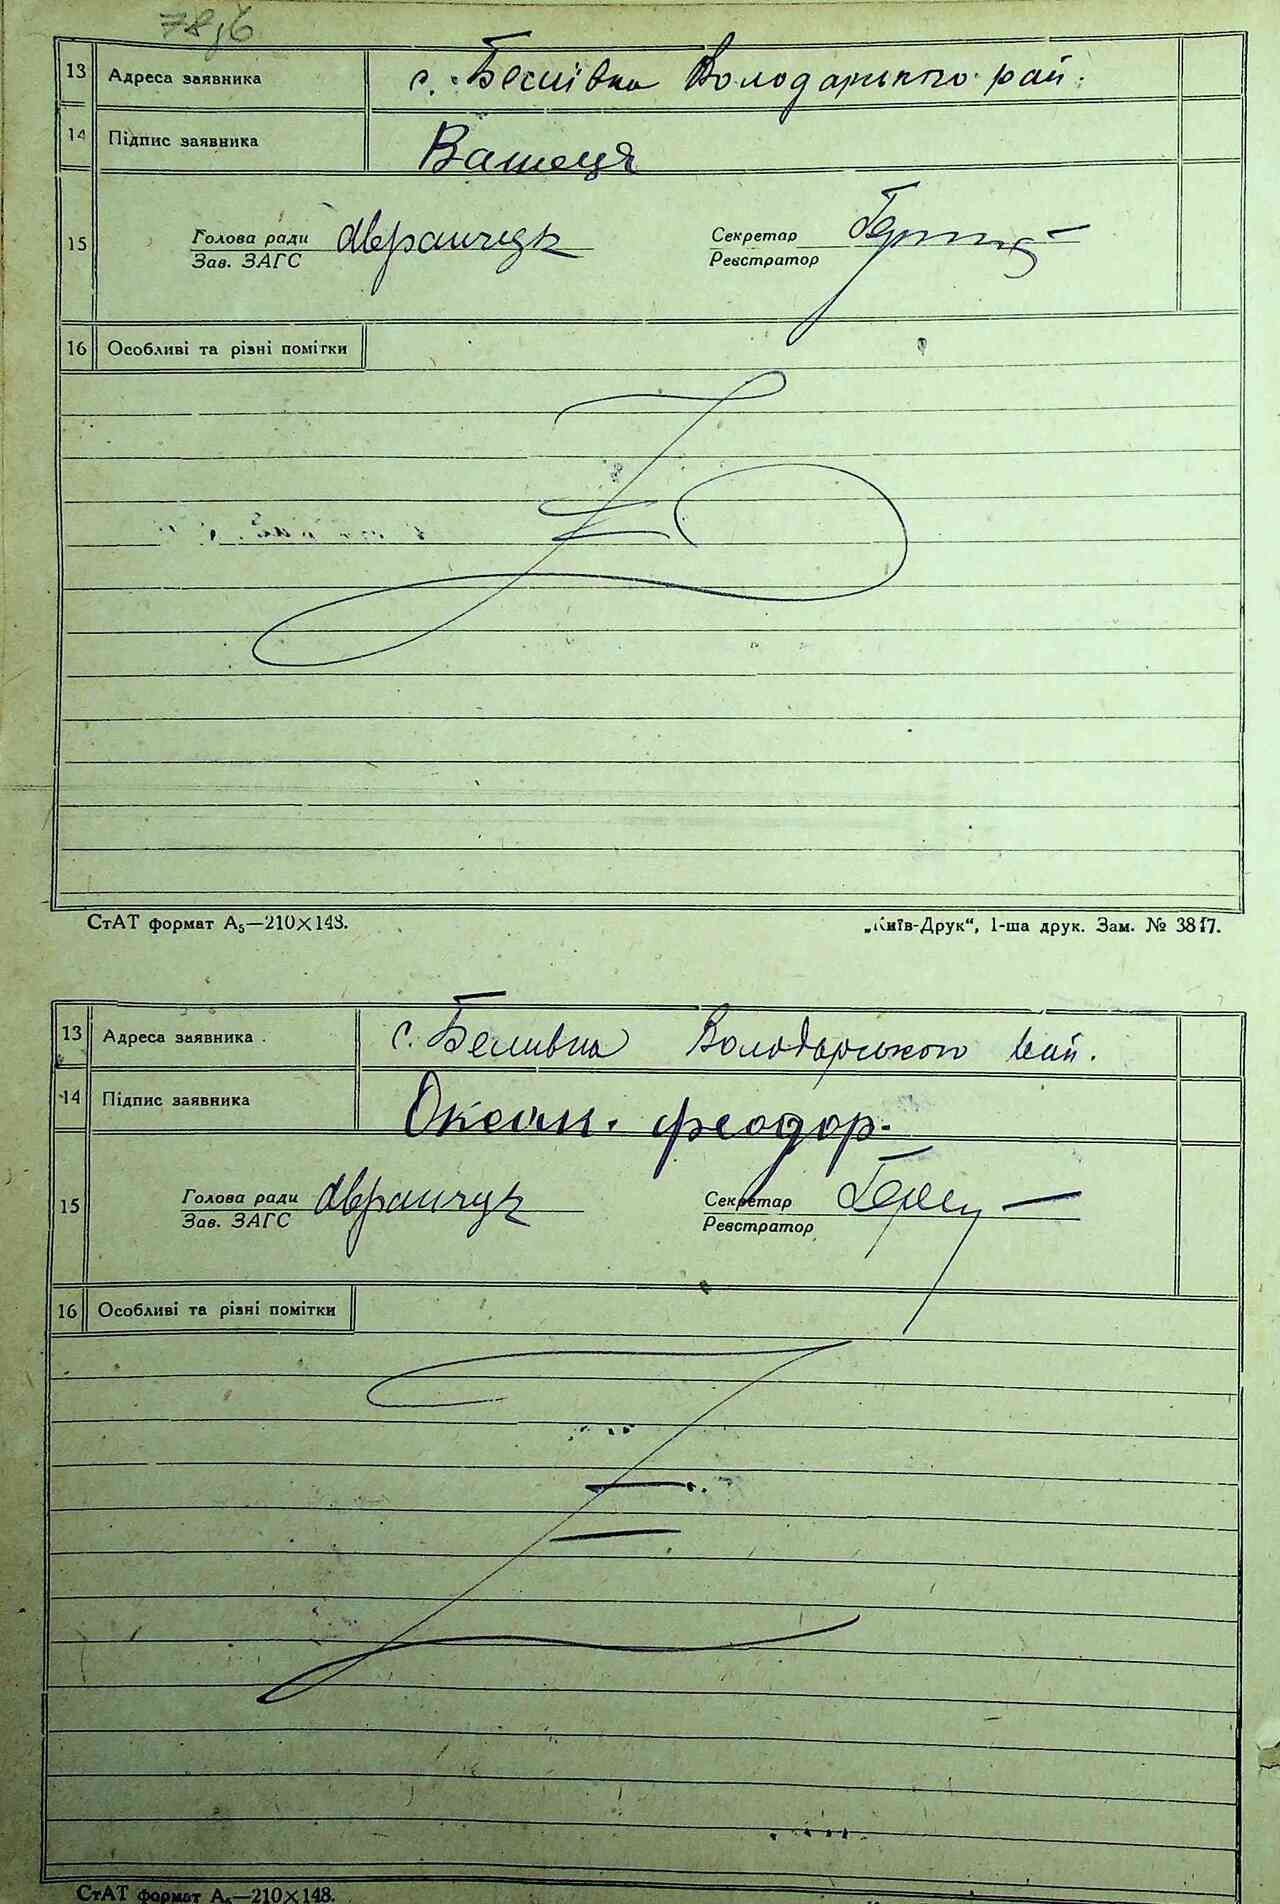 13 Адреса заявника с. Володарського рай.
14 Підпис заявника Вашеця
15 Голова ради Аврамчук Секретар
Зав. ЗАГС Реєстратор
16 Особливі та різні помітки
СтАТ формат А₅—210×148.
„Київ-Друк“, 1-ша друк. Зам. № 3817.
13 Адреса заявника с. Володарського рай.
14 Підпис заявника Океан. феодор.
15 Голова ради Аврамчук Секретар
Зав. ЗАГС Реєстратор
16 Особливі та різні помітки
СтАТ формат А₅—210×148.